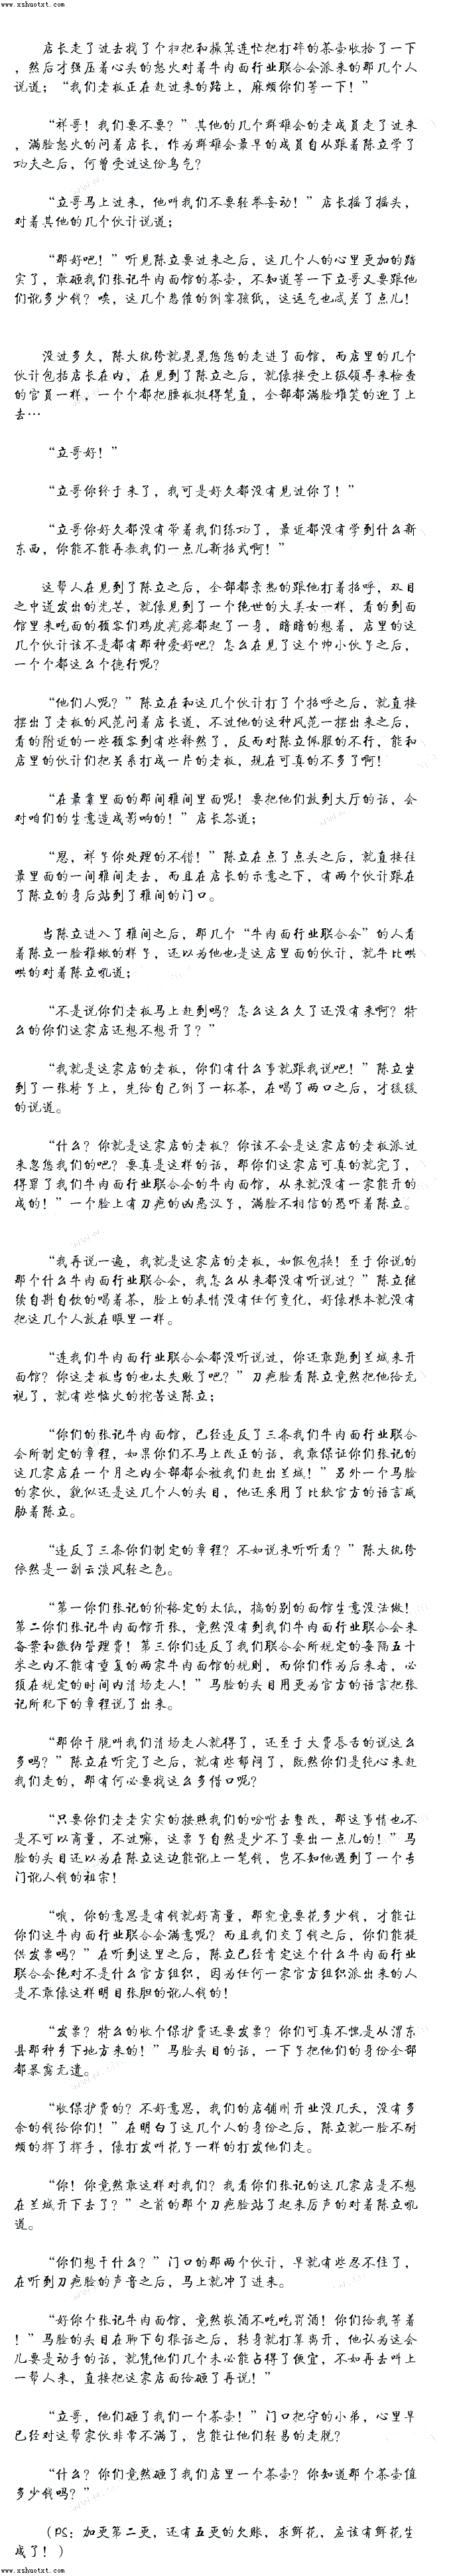 www.xshuotxt.com
店长走了过去找了个扫把和撮箕连忙把打碎的茶壶收拾了一下
，然后才强压着心头的怒火对着牛肉面行业联合会派来的那几个人
说道；“我们老板正在赶过来的路上，麻烦你们等一下！”
“祥哥！我们要不要？”其他的几个群雄会的老成员走了过来
，满脸怒火的问着店长，作为群雄会最早的成员自从跟着陈立学了
功夫之后，何曾受过这份鸟气？
“立哥马上过来，他叫我们不要轻举妄动！”店长摇了摇头，
对着其他的几个伙计说道；
“那好吧！”听见陈立要过来之后，这几个人的心里更加的踏
实了，敢砸我们张记牛肉面馆的茶壶，不知道等一下立哥又要跟他
们讹多少钱？唉，这几个悲催的倒霉孩纸，这运气也忒差了点儿！
没过多久，陈大纨绔就晃晃悠悠的走进了面馆，而店里的几个
伙计包括店长在内，在见到了陈立之后，就像接受上级领导来检查
的官员一样，一个个都把腰板挺得笔直，全部都满脸堆笑的迎了上
去…
“立哥好！”
“立哥你终于来了，我可是好久都没有见过你了！”
“立哥你好久都没有带着我们练功了，最近都没有学到什么新
东西，你能不能再教我们一点儿新招式啊！”
这帮人在见到了陈立之后，全部都亲热的跟他打着招呼，双目
之中迸发出的光芒，就像见到了一个绝世的大美女一样，看的到面
馆里来吃面的顾客们鸡皮疙瘩都起了一身，暗暗的想着，店里的这
几个伙计该不是都有那种爱好吧？怎么在见了这个帅小伙子之后，
一个个都这么个德行呢？
“他们人呢？”陈立在和这几个伙计打了个招呼之后，就直接
摆出了老板的风范问着店长道，不过他的这种风范一摆出来之后，
看的附近的一些顾客到有些释然了，反而对陈立佩服的不行，能和
店里的伙计们把关系打成一片的老板，现在可真的不多了啊！
“在最靠里面的那间雅间里面呢！要把他们放到大厅的话，会
对咱们的生意造成影响的！”店长答道；
“恩，祥子你处理的不错！”陈立在点了点头之后，就直接往
最里面的一间雅间走去，而且在店长的示意之下，有两个伙计跟在
了陈立的身后站到了雅间的门口。
当陈立进入了雅间之后，那几个“牛肉面行业联合会”的人看
着陈立一脸稚嫩的样子，还以为他也是这店里面的伙计，就牛比哄
哄的对着陈立吼道；
“不是说你们老板马上赶到吗？怎么这么久了还没有来啊？特
么的你们这家店还想不想开了？”
“我就是这家店的老板，你们有什么事就跟我说吧！”陈立坐
到了一张椅子上，先给自己倒了一杯茶，在喝了两口之后，才缓缓
的说道。
“什么？你就是这家店的老板？你该不会是这家店的老板派过
来忽悠我们的吧？要真是这样的话，那你们这家店可真的就完了，
得罪了我们牛肉面行业联合会的牛肉面馆，从来就没有一家能开的
成的！”一个脸上有刀疤的凶恶汉子，满脸不相信的恐吓着陈立。
“我再说一遍，我就是这家店的老板，如假包换！至于你说的
那个什么牛肉面行业联合会，我怎么从来都没有听说过？”陈立继
续自斟自饮的喝着茶，脸上的表情没有任何变化，好像根本就没有
把这几个人放在眼里一样。
“连我们牛肉面行业联合会都没听说过，你还敢跑到兰城来开
面馆？你这老板当的也太失败了吧？”刀疤脸看陈立竟然把他给无
视了，就有些恼火的挖苦这陈立；
“你们的张记牛肉面馆，已经违反了三条我们牛肉面行业联合
会所制定的章程，如果你们不马上改正的话，我敢保证你们张记的
这几家店在一个月之内全部都会被我们赶出兰城！”另外一个马脸
的家伙，貌似还是这几个人的头目，他还采用了比较官方的语言威
胁着陈立。
“违反了三条你们制定的章程？不如说来听听看？”陈大纨绔
依然是一副云淡风轻之色。
“第一你们张记的价格定的太低，搞的别的面馆生意没法做！
第二你们张记牛肉面馆开张，竟然没有到我们牛肉面行业联合会来
备案和缴纳管理费！第三你们违反了我们联合会所规定的每隔五十
米之内不能有重复的两家牛肉面馆的规则，而你们作为后来者，必
须在规定的时间内清场走人！”马脸的头目用更为官方的语言把张
记所犯下的章程说了出来。
“那你干脆叫我们清场走人就得了，还至于大费唇舌的说这么
多吗？”陈立在听完了之后，就有些郁闷了，既然你们是纯心来赶
我们走的，那有何必要找这么多借口呢？
“只要你们老老实实的按照我们的吩咐去整改，那这事情也不
是不可以商量，不过嘛，这票子自然是少不了要出一点儿的！”马
脸的头目还以为在陈立这边能讹上一笔钱，岂不知他遇到了一个专
门讹人钱的祖宗！
“哦，你的意思是有钱就好商量，那究竟要花多少钱，才能让
你们这牛肉面行业联合会满意呢？而且我们交了钱之后，你们能提
供发票吗？”在听到这里之后，陈立已经肯定这个什么牛肉面行业
联合会绝对不是什么官方组织，因为任何一家官方组织派出来的人
是不敢像这样明目张胆的讹人钱的！
“发票？特么的收个保护费还要发票？你们可真不愧是从渭东
县那种乡下地方来的！”马脸头目的话，一下子把他们的身份全部
都暴露无遗。
“收保护费的？不好意思，我们的店铺刚开业没几天，没有多
余的钱给你们！”在明白了这几个人的身份之后，陈立就一脸不耐
烦的挥了挥手，像打发叫花子一样的打发他们走。
“你！你竟然敢这样对我们？我看你们张记的这几家店是不想
在兰城开下去了？”之前的那个刀疤脸站了起来厉声的对着陈立吼
道。
“你们想干什么？”门口的那两个伙计，早就有些忍不住了，
在听到刀疤脸的声音之后，马上就冲了进来。
“好你个张记牛肉面馆，竟然敬酒不吃吃罚酒！你们给我等着
！”马脸的头目在聊下句狠话之后，转身就打算离开，他认为这会
儿要是动手的话，就凭他们几个未必能占得了便宜，不如再去叫上
一帮人来，直接把这家店面给砸了再说！”
“立哥，他们砸了我们一个茶壶！”门口把守的小弟，心里早
已经对这帮家伙非常不满了，岂能让他们轻易的走脱？
“什么？你们竟然砸了我们店里一个茶壶？你知道那个茶壶值
多少钱吗？”
（PS：加更第二更，还有五更的欠账，求鲜花，应该有鲜花生
成了！）
www.xshuotxt.com